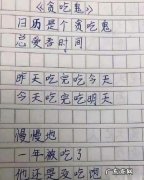 《贪吃鬼》
日历是个贪吃鬼
总爱吞时间
昨天吃完吃今天
今天吃完吃明天
慢慢地
一年被吃了
他还是没吃饱